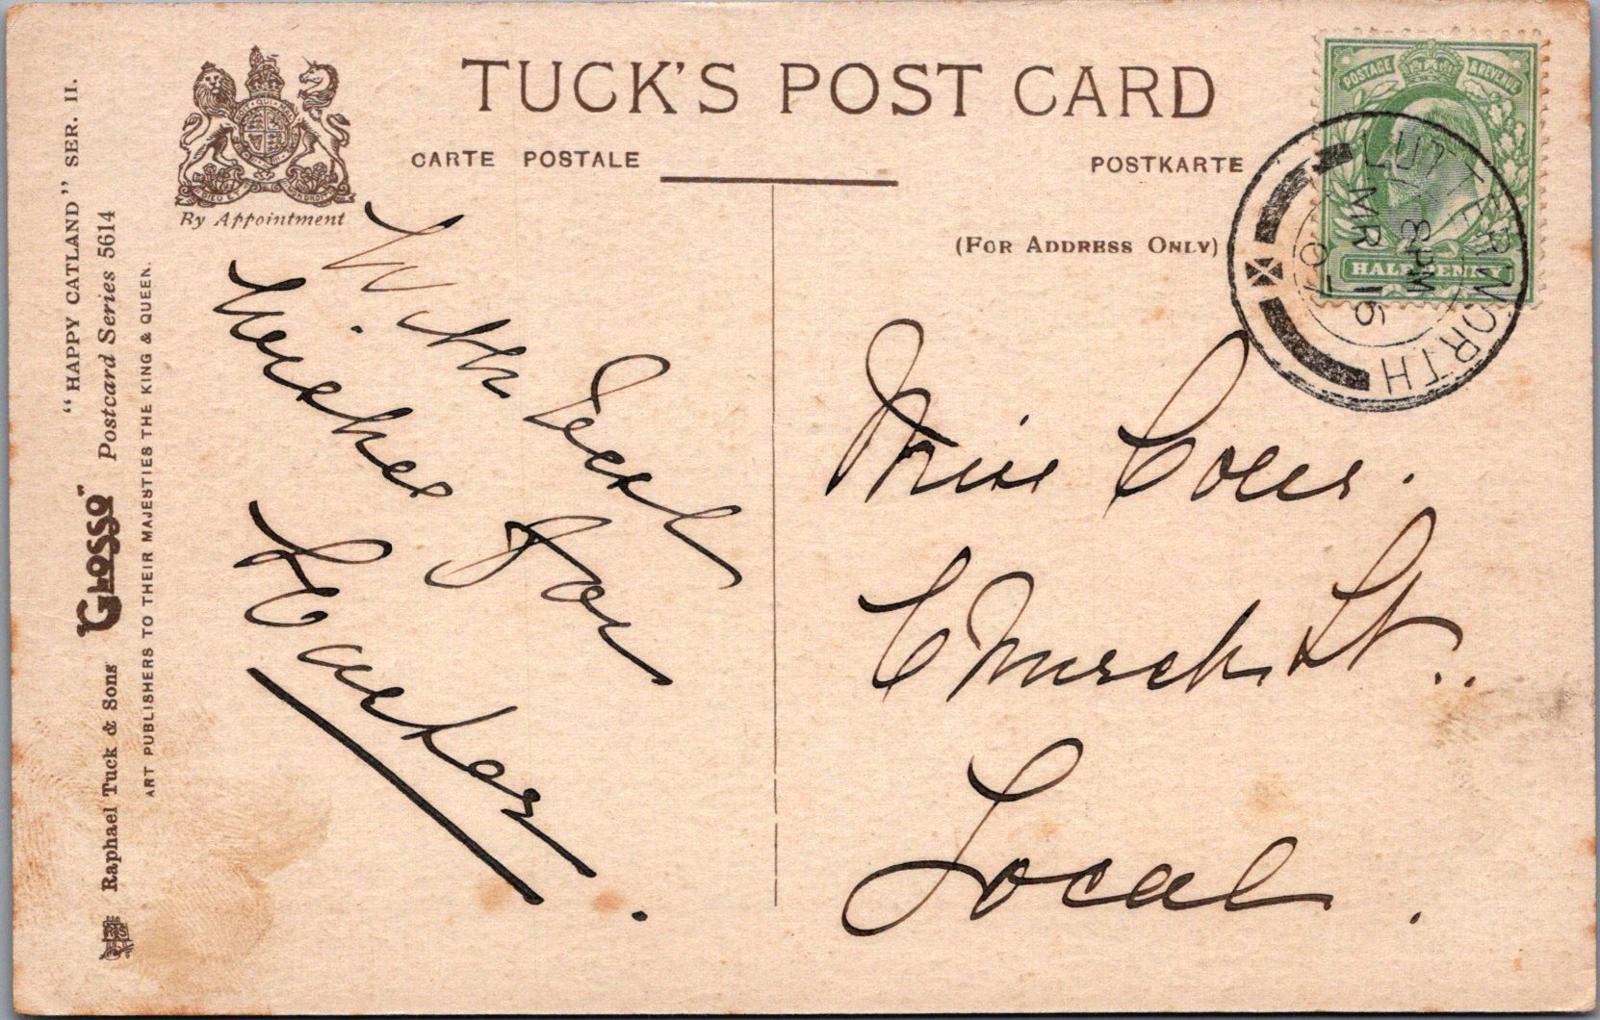 TUCK'S POST CARD
CARTE POSTALE
POSTKARTE
By Appointment
(FOR ADDRESS ONLY)
"HAPPY CATLAND" SER. II.
Raphael Tuck & Sons "GLOSSO" Postcard Series 5614
ART PUBLISHERS TO THEIR MAJESTIES THE KING & QUEEN.
POSTAGE & REVENUE
HALFPENNY
LUTTERWORTH
8 PM
MR 16
07
With Best
Wishes for
Easter.
Miss Coles.
Church St..
Local.